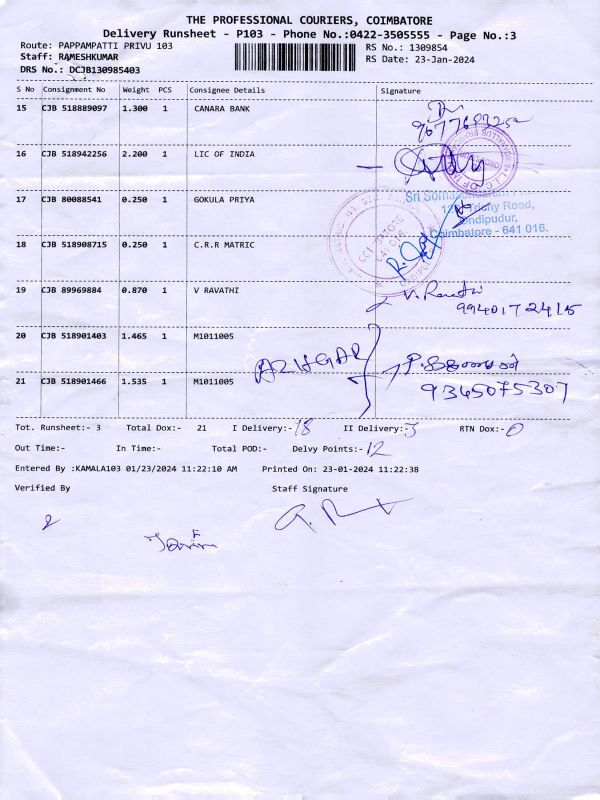 THE PROFESSIONAL COURIERS, COIMBATORE
Delivery Runsheet - P103 - Phone No.:0422-3505555 - Page No.:3
Route: PAPPAMPATTI PRIVU 103 RS No.: 1309854
Staff: RAMESHKUMAR RS Date: 23-Jan-2024
DRS No.: DCJB130985403
S No Consignment No Weight PCS Consignee Details Signature
15 CJB 518889097 1.300 1 CANARA BANK
16 CJB 518942256 2.200 1 LIC OF INDIA
17 CJB 80088541 0.250 1 GOKULA PRIYA
Trichy Road,
Ondipudur,
Coimbatore - 641 016.
18 CJB 518908715 0.250 1 C.R.R MATRIC
19 CJB 89969884 0.870 1 V RAVATHI V. Ravathi
9940172415
20 CJB 518901403 1.465 1 M1011005
AZHGAR
21 CJB 518901466 1.535 1 M1011005 9345075307
Tot. Runsheet:- 3 Total Dox:- 21 I Delivery:- 18 II Delivery:- 3 RTN Dox:- 0
Out Time:- In Time:- Total POD:- Delvy Points:- 12
Entered By :KAMALA103 01/23/2024 11:22:10 AM Printed On: 23-01-2024 11:22:38
Verified By Staff Signature